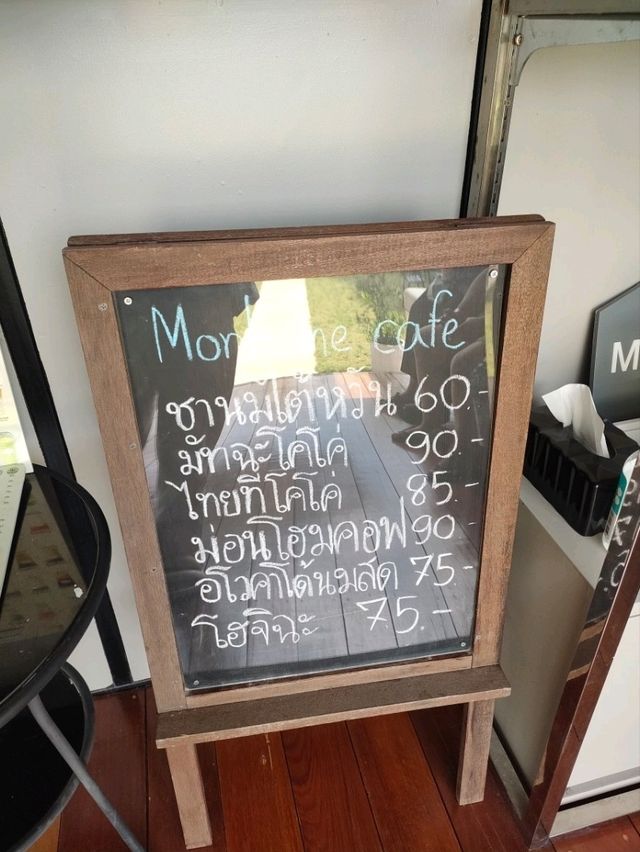 cafe
ชานมไต้หวัน 60.-
มัทฉะโคโค่ 90.-
ไทยทีโคโค่ 85.-
มอนโฮมคอฟ 90.-
อโวคาโด้นมสด 75.-
โฮจิฉะ 75.-
M